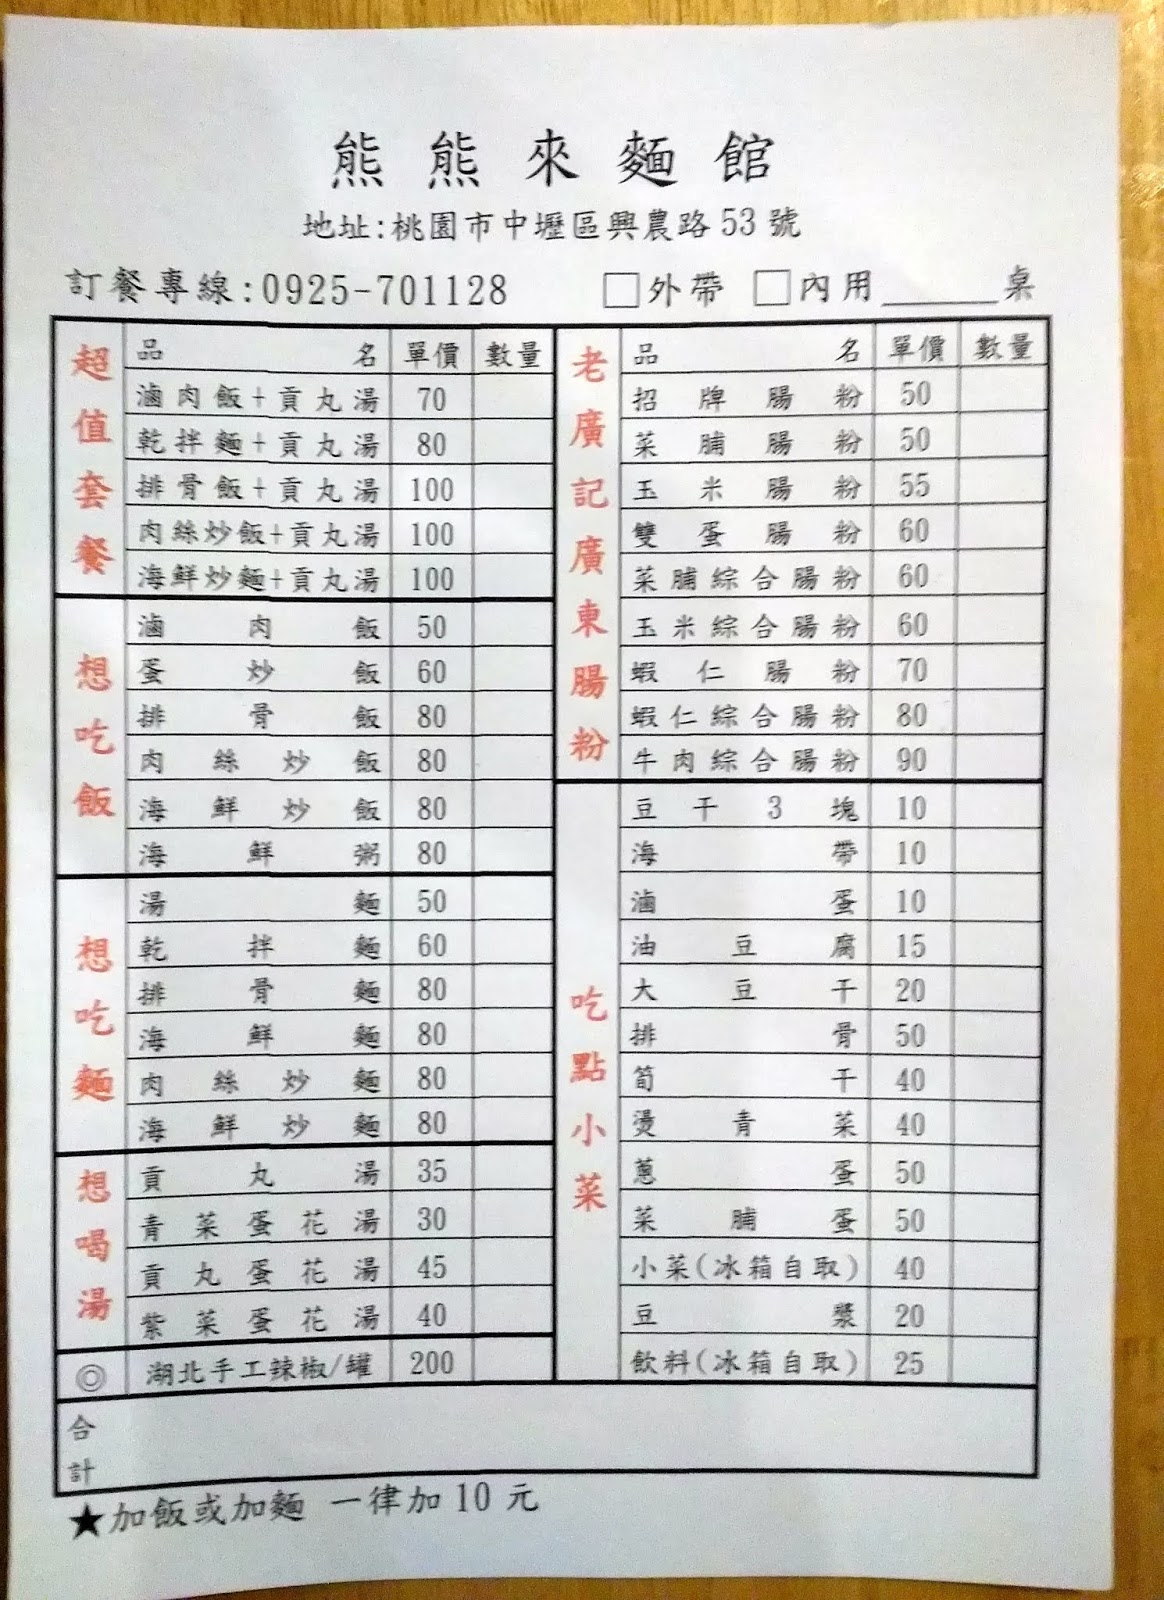 熊熊來麵館
地址:桃園市中壢區興農路53號
訂餐專線:0925-701128 □外帶 □內用______桌
超值套餐
品名 單價 數量
滷肉飯+貢丸湯 70
乾拌麵+貢丸湯 80
排骨飯+貢丸湯 100
肉絲炒飯+貢丸湯 100
海鮮炒麵+貢丸湯 100
想吃飯
滷肉飯 50
蛋炒飯 60
排骨飯 80
肉絲炒飯 80
海鮮炒飯 80
海鮮粥 80
想吃麵
湯麵 50
乾拌麵 60
排骨麵 80
海鮮麵 80
肉絲炒麵 80
海鮮炒麵 80
想喝湯
貢丸湯 35
青菜蛋花湯 30
貢丸蛋花湯 45
紫菜蛋花湯 40
◎ 湖北手工辣椒/罐 200
老廣記廣東腸粉
品名 單價 數量
招牌腸粉 50
菜脯腸粉 50
玉米腸粉 55
雙蛋腸粉 60
菜脯綜合腸粉 60
玉米綜合腸粉 60
蝦仁腸粉 70
蝦仁綜合腸粉 80
牛肉綜合腸粉 90
吃點小菜
豆干3塊 10
海帶 10
滷蛋 10
油豆腐 15
大豆干 20
排骨 50
筍干 40
燙青菜 40
蔥蛋 50
菜脯蛋 50
小菜(冰箱自取) 40
豆漿 20
飲料(冰箱自取) 25
合計
★加飯或加麵 一律加10元